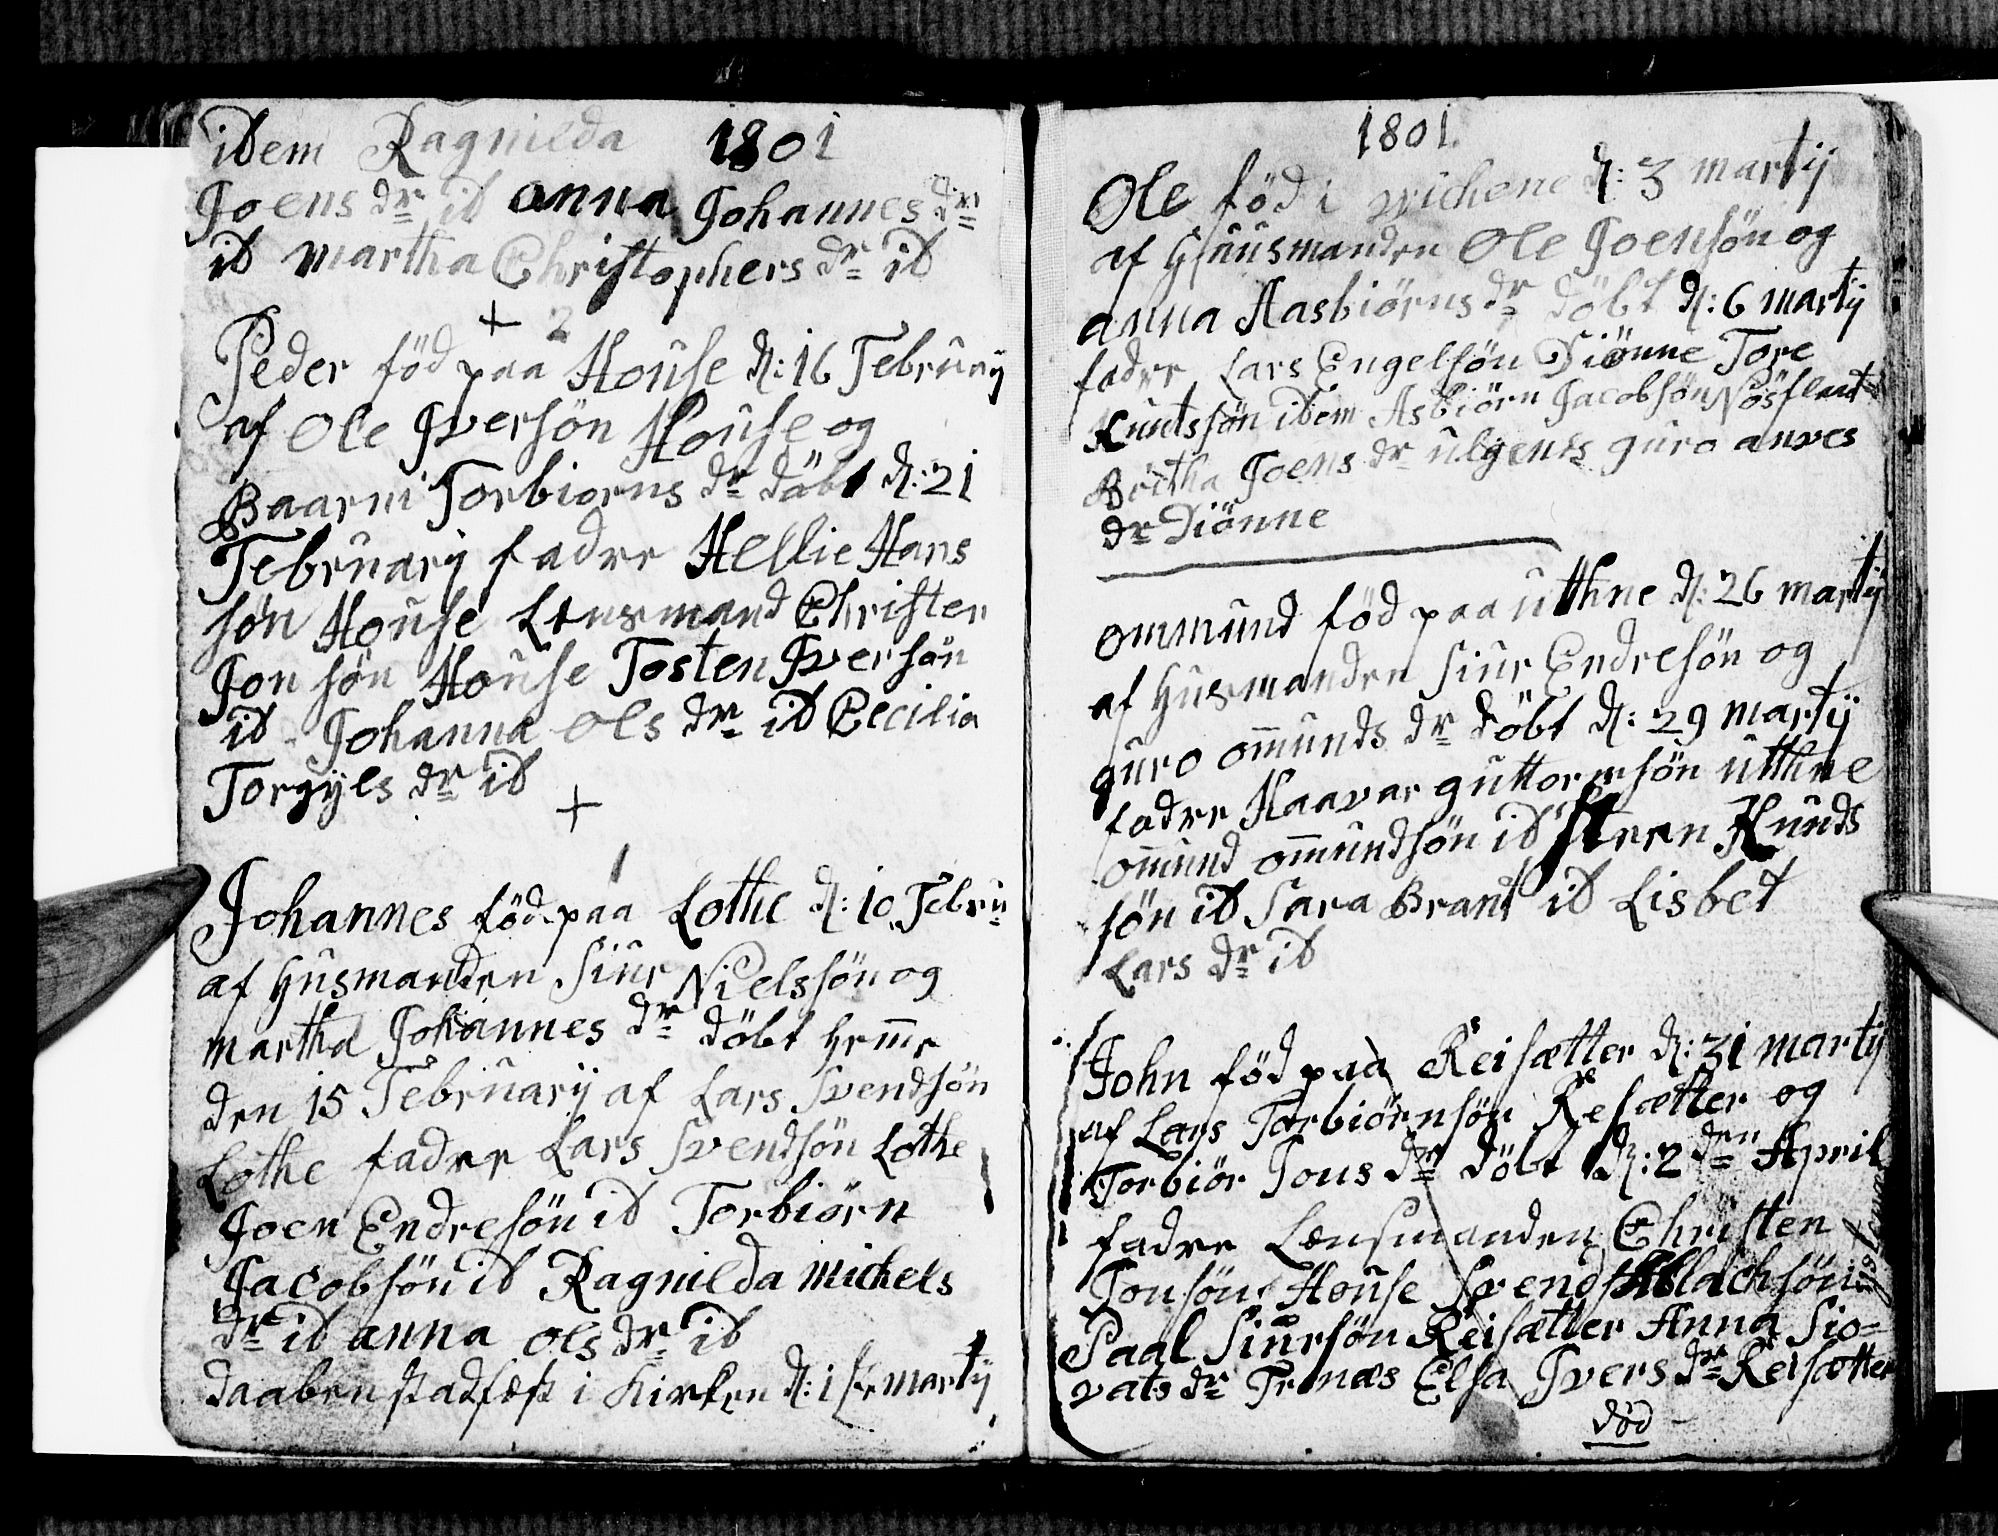 1801
idem Ragnilda
Joens dr id anna Johannes dr
id martha Christophers dr id
+ 2
Peder föd paa House d: 16 Februarij
af Ole Iversön House og
Baarni Torbiorns dr döbt d: 21
Februarij fadre Hellie Hans
sön House Lensmand Christen
Jon sön House Tosten Iversön
id Johanna Ols dr id Cecilia
Torgyls dr id
+
1
Johannes föd paa Lothe d: 10 Febru
af Husmanden Siur Nielssön og
martha Johannes dr döbt hieme
den 15 Februarij af Lars Svendsön
Lothe fadre Lars Svendsön Lothe
Joen Endresön id Torbiörn
Jacobsön id Ragnilda michels
dr id anna Ols dr id
daaben stadfæst i Kirken d: 1ste martij
1801.
Ole föd i vichene d: 3 martij
af Huusmanden Ole Joensön og
anna Aasbiörns dr döbt d: 6 martij
fadre Lars Engelsön Diönne Tore
Knutssön ibidem Asbiörn Jacobsön
Britha Joens dr ulgenes guro anves
dr Diönne
ommund föd paa uthne d: 26 martij
af Husmanden Siur Endresön og
guro om̄unds dr döbt d: 29 martij
fadre Haavar guttormsön utthne
om̄und om̄undsön id Steen Knuds
sön id Sara Brant id Lisbet
Lars dr id
John föd paa Reisætter d: 31 martij
af Lars Torbiörnsön Resætter og
Torbiör Jons dr döbt d: 2 den April
fadre Lensmanden Christen
Jonsön House Svend
Paal Siursön Reisætter Anna Sio-
vats dr Elsa Ivers dr Reisætter
död